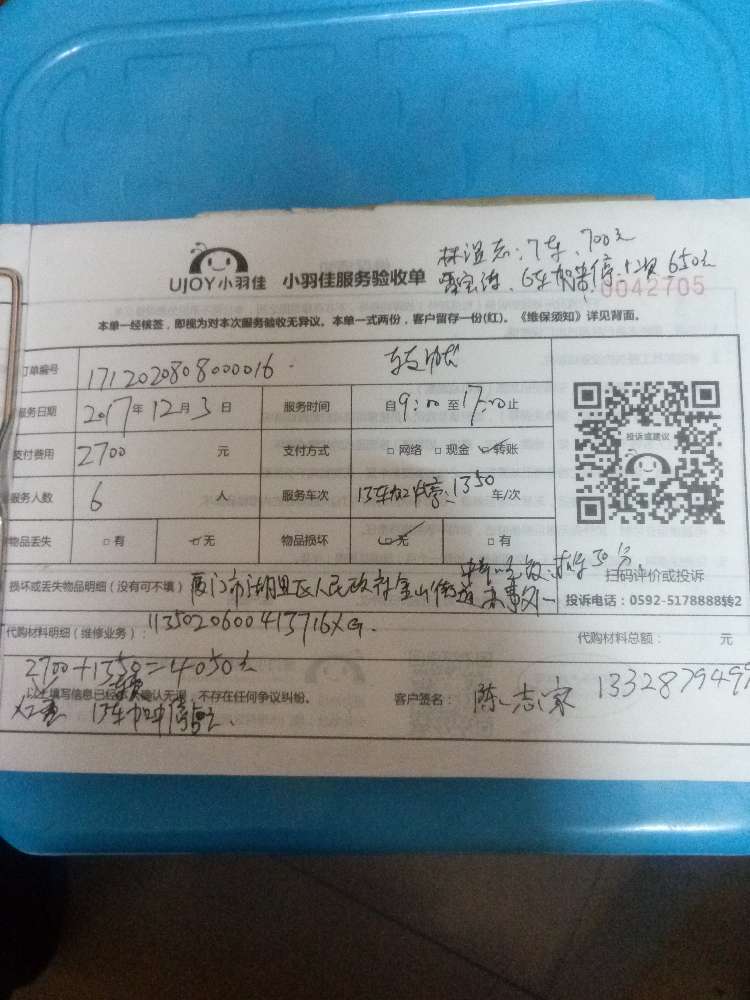 林温志：7车、700元
UJOY小羽佳 小羽佳服务验收单
6车加装停 650元
0042705
本单一经核签，即视为对本次服务验收无异议。本单一式两份，客户留存一份(红)。《维保须知》详见背面。
订单编号 171202080800016.
服务日期 2017年12月3日 服务时间 自9:00至17:00止
投诉或建议
支付费用 2700 元 支付方式 □网络 □现金 ☑转账
服务人数 6 人 服务车次 13车加停 1350 车/次
物品丢失 □有 ☑无 物品损坏 ☑无 □有
扫码评价或投诉
损坏或丢失物品明细（没有可不填） 厦门市湖里区人民政府金山街道办事处
投诉电话：0592-5178888转2
代购材料明细（维修业务）： 11350206004137716XG.
代购材料总额： 元
2700+1350=4050元
以上填写信息已经本人确认无误，不存在任何争议纠纷。
客户签名： 陈志家 1332879499
人工费 13车加停